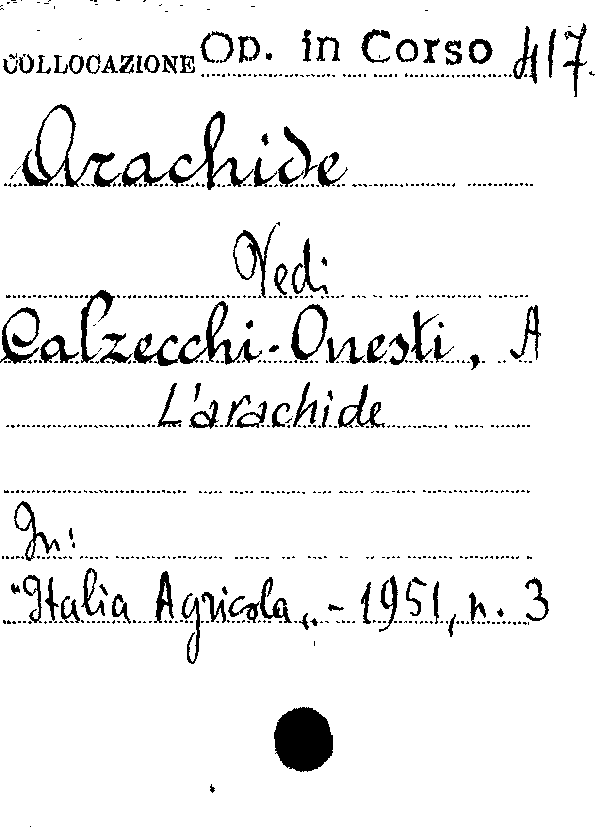 COLLOCAZIONE Op. in Corso 417.
Arachide
Vedi
Calzecchi-Onesti, A
L'arachide
In:
"Italia Agricola„ - 1951, n. 3